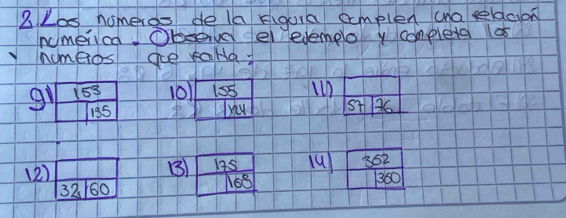 2. Los números de la figura cumplen una relación
numérica. Observa el ejemplo y completa los
números que falta:
9) 153 10) 155 11)
135 124 57 76
12) 13) 175 14) 362
32 60 168 360